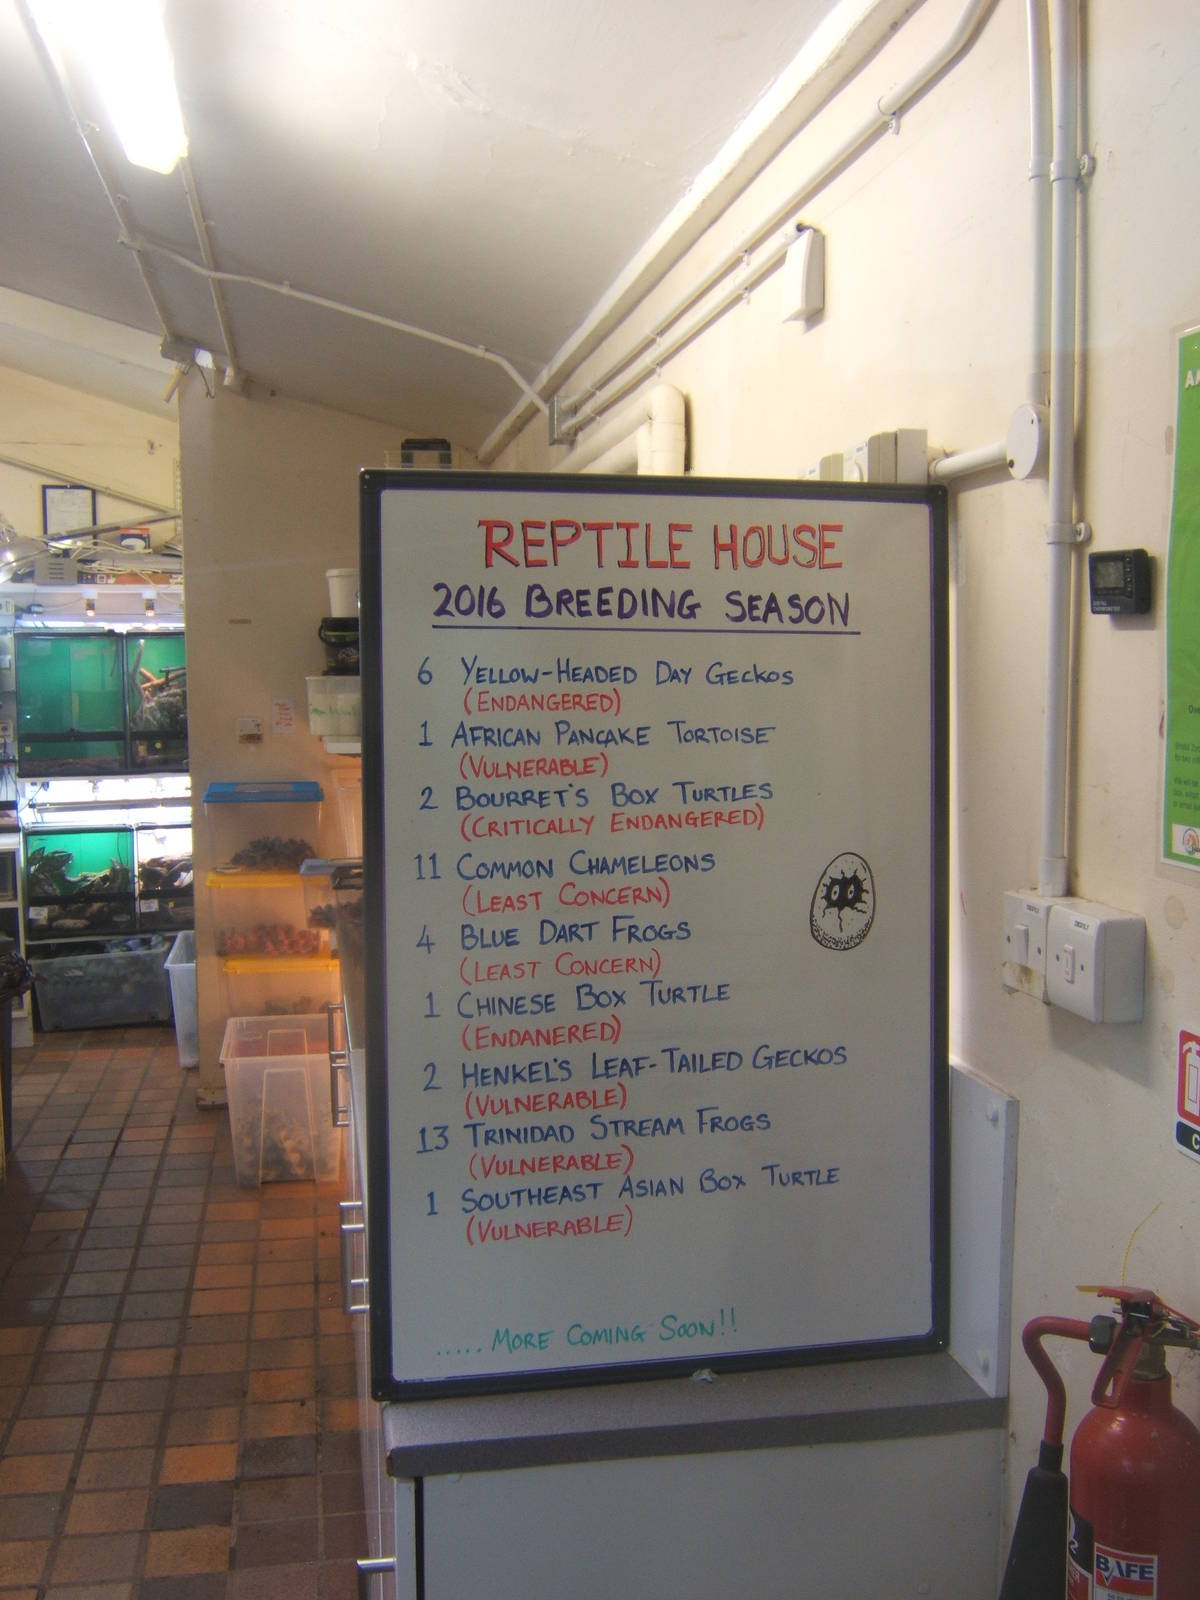 REPTILE HOUSE
2016 BREEDING SEASON
6 YELLOW-HEADED DAY GECKOS
(ENDANGERED)
1 AFRICAN PANCAKE TORTOISE
(VULNERABLE)
2 BOURRET'S BOX TURTLES
(CRITICALLY ENDANGERED)
11 COMMON CHAMELEONS
(LEAST CONCERN)
4 BLUE DART FROGS
(LEAST CONCERN)
1 CHINESE BOX TURTLE
(ENDANERED)
2 HENKEL'S LEAF-TAILED GECKOS
(VULNERABLE)
13 TRINIDAD STREAM FROGS
(VULNERABLE)
1 SOUTHEAST ASIAN BOX TURTLE
(VULNERABLE)
..... MORE COMING SOON!!
BAFE